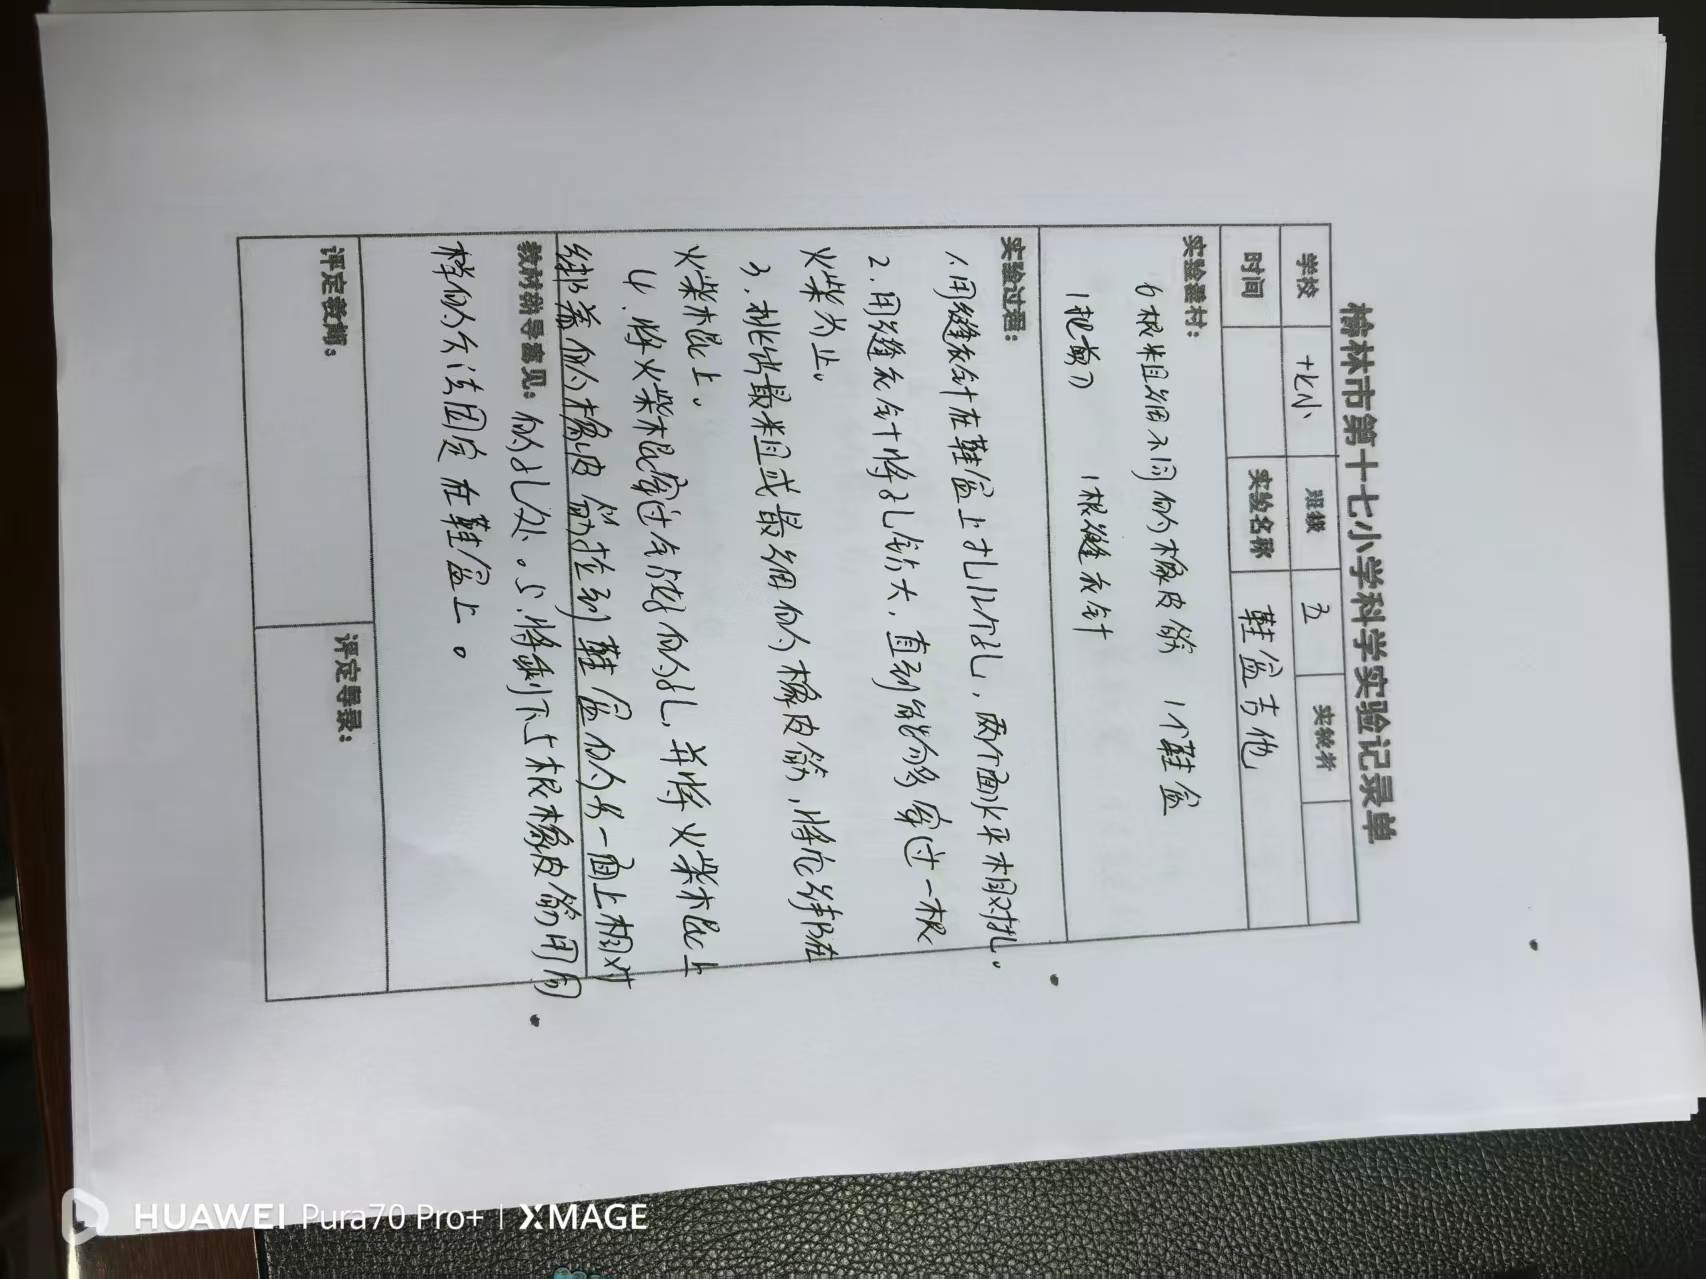 榆林市第十七小学科学实验记录单
学校 十七小 班级 五 实验者
时间 实验名称 鞋盒吉他
实验器材：
6根粗细不同的橡皮筋 1个鞋盒
1把剪刀 1根缝衣针
实验过程：
1.用缝衣针在鞋盒上扎12个孔，两个面水平相对扎。
2.用缝衣针将孔钻大，直到能够穿过一根
火柴为止。
3.挑出最粗或最细的橡皮筋，将它绑在
火柴棍上。
4.将火柴棍穿过钻好的孔，并将火柴棍上
绑着的橡皮筋拉到鞋盒的另一面上相对
教材辅导意见：的孔处。5.将剩下5根橡皮筋用同
样的方法固定在鞋盒上。
评定教师： 评定等录：
HUAWEI Pura70 Pro+ | XMAGE